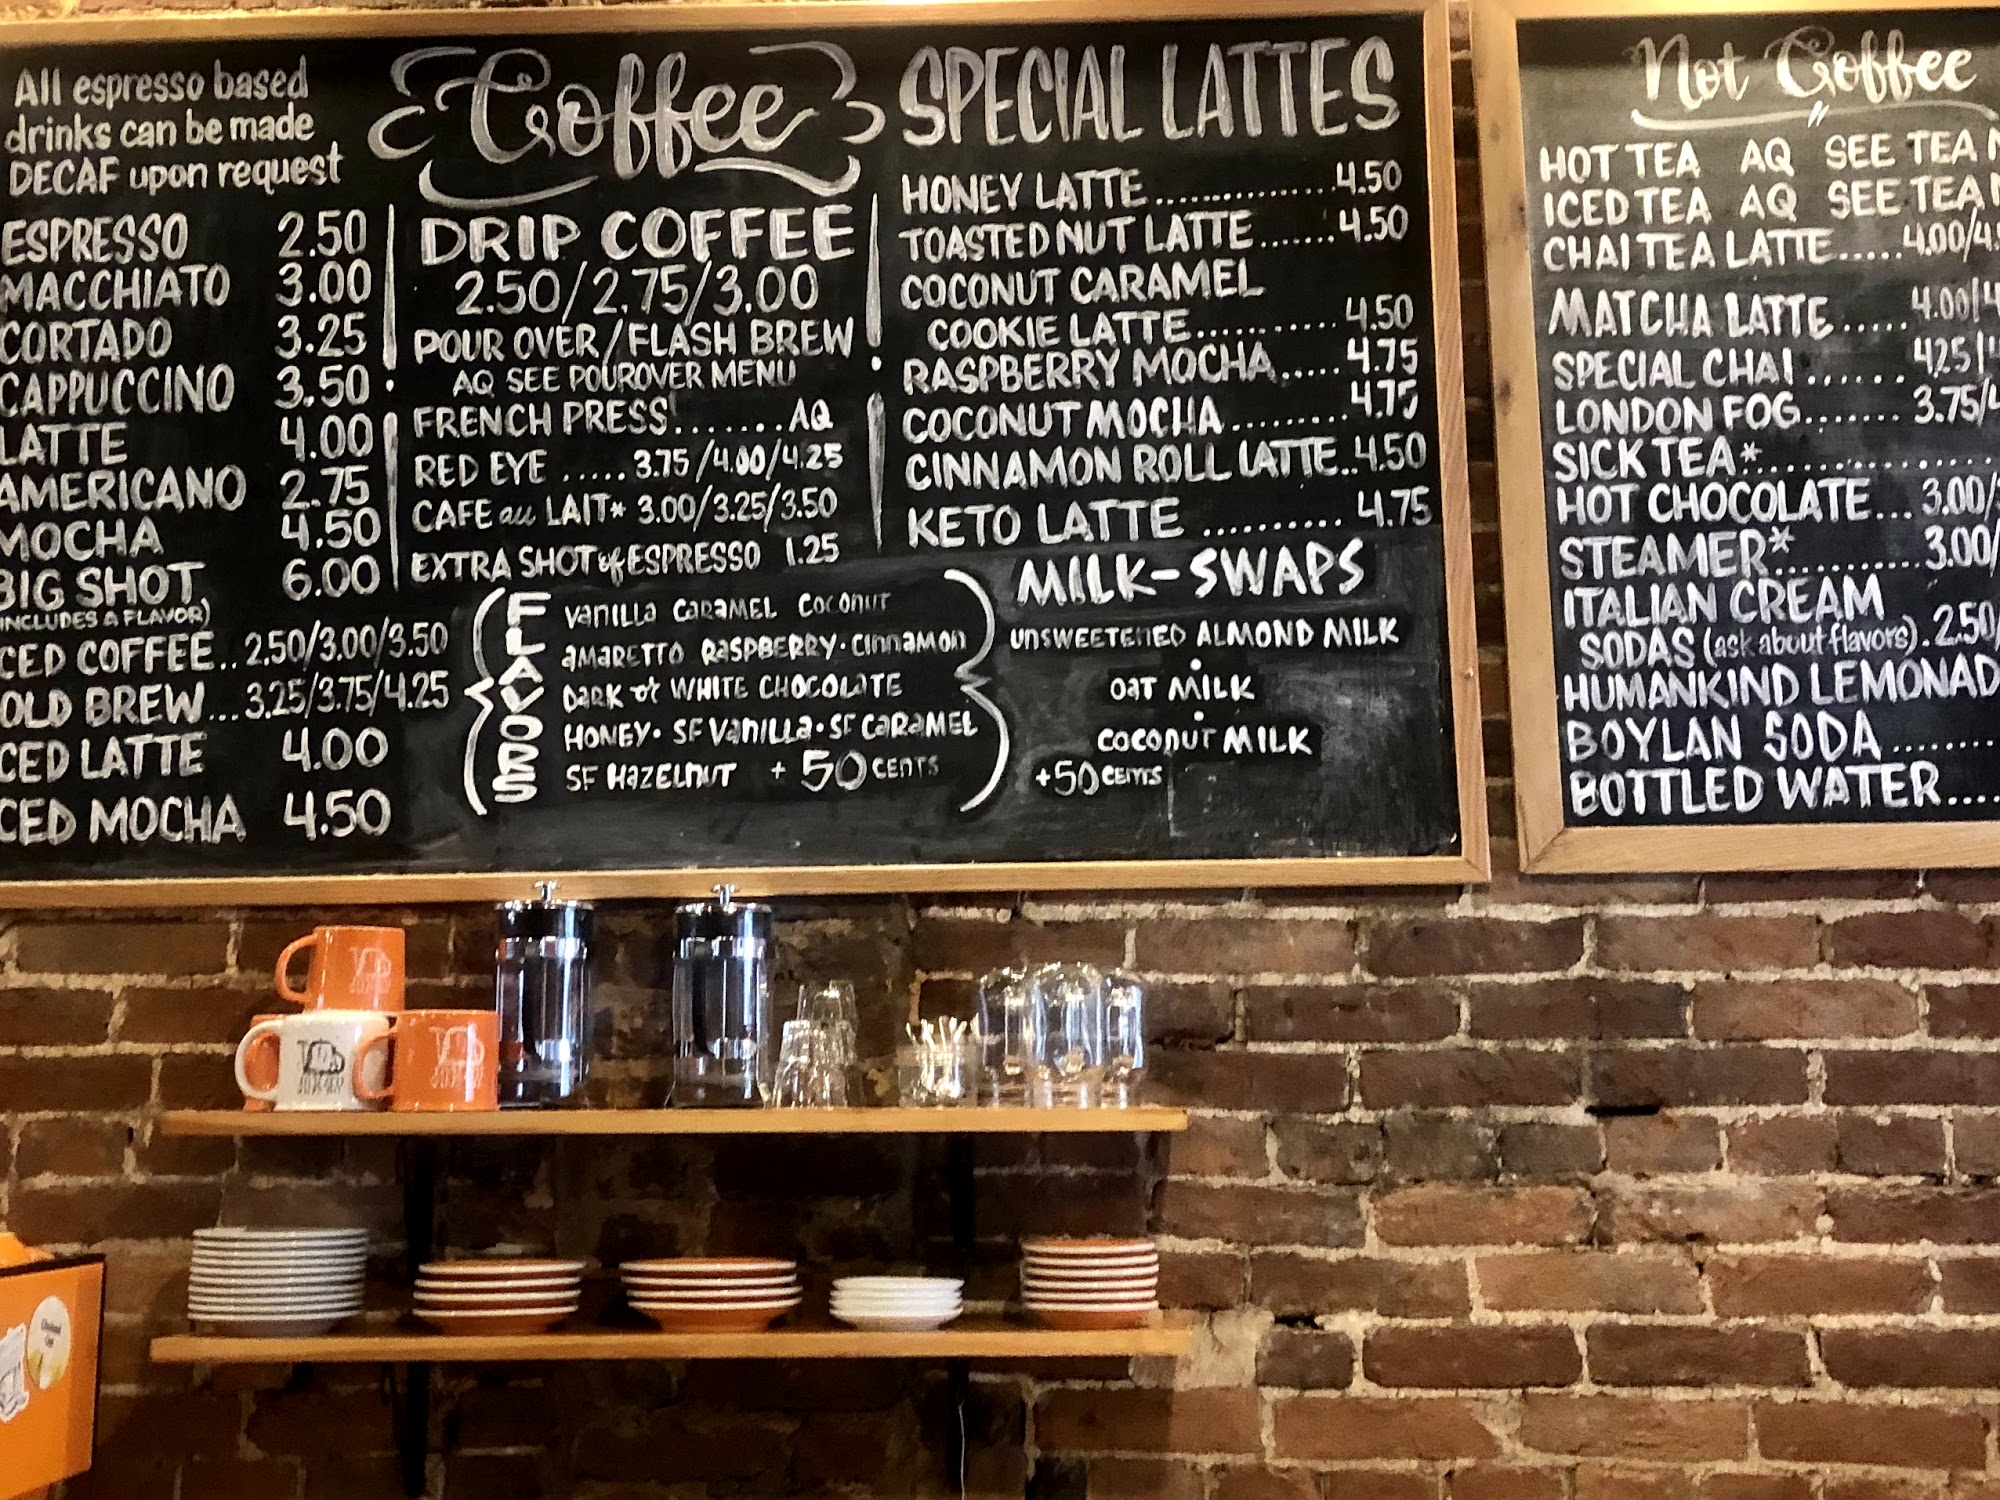 All espresso based
drinks can be made
DECAF upon request
ESPRESSO 2.50
MACCHIATO 3.00
CORTADO 3.25
CAPPUCCINO 3.50
LATTE 4.00
AMERICANO 2.75
MOCHA 4.50
BIG SHOT 6.00
INCLUDES A FLAVOR)
CED COFFEE.. 2.50/3.00/3.50
OLD BREW... 3.25/3.75/4.25
CED LATTE 4.00
CED MOCHA 4.50
Coffee
DRIP COFFEE
2.50/2.75/3.00
POUR OVER/FLASH BREW
AQ SEE POUROVER MENU
FRENCH PRESS....... AQ
RED EYE ..... 3.75/4.00/4.25
CAFE au LAIT* 3.00/3.25/3.50
EXTRA SHOT of ESPRESSO 1.25
FLAVORS
VANILLA CARAMEL COCONUT
AMARETTO RASPBERRY · CINNAMON
DARK or WHITE CHOCOLATE
HONEY · SF VANILLA · SF CARAMEL
SF HAZELNUT + 50 CENTS
SPECIAL LATTES
HONEY LATTE ............... 4.50
TOASTED NUT LATTE ....... 4.50
COCONUT CARAMEL
COOKIE LATTE ........... 4.50
RASPBERRY MOCHA ..... 4.75
COCONUT MOCHA ......... 4.75
CINNAMON ROLL LATTE.. 4.50
KETO LATTE .......... 4.75
MILK-SWAPS
UNSWEETENED ALMOND MILK
·
OAT MILK
·
COCONUT MILK
+50 CENTS
Not Coffee
HOT TEA AQ SEE TEA
ICED TEA AQ SEE TEA
CHAI TEA LATTE..... 4.00/4
MATCHA LATTE ..... 4.00/4
SPECIAL CHAI ...... 4.25/
LONDON FOG ....... 3.75/4
SICK TEA* ..................
HOT CHOCOLATE ... 3.00/
STEAMER* ........... 3.00/
ITALIAN CREAM
SODAS (ask about flavors). 2.50/
HUMANKIND LEMONAD
BOYLAN SODA ........
BOTTLED WATER....